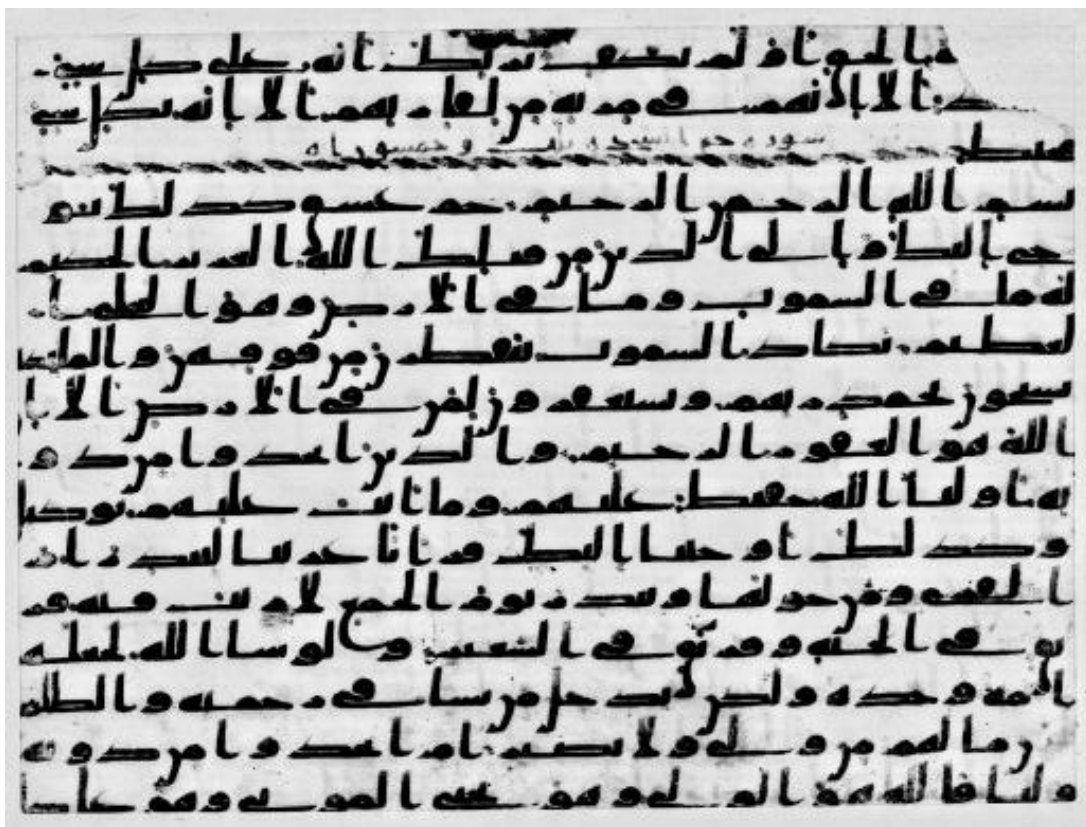 ه الحق او لم يكف بربك انه على كل شي
د الا انهم في مرية من لقا ربهم الا انه بكل شي
محيط سورة حم السجدة ثلث وخمسون اية
بسم الله الرحمن الرحيم حم عسق كذلك يو
حي اليك والى الذين من قبلك الله العزيز الحكيم
له ما في السموت وما في الارض وهو العلي ا
لعظيم تكاد السموت يتفطرن من فوقهن والملئكة
يسبحون بحمد ربهم ويستغفرون لمن في الارض الا ان
الله هو الغفور الرحيم والذين اتخذوا من دو
نه اوليا الله حفيظ عليهم وما انت عليهم بوكيل
وكذلك اوحينا اليك قرانا عربيا لتنذر ام
القرى ومن حولها وتنذر يوم الجمع لا ريب فيه فر
يق في الجنة وفريق في السعير ولو شا الله لجعلهم
امة وحدة ولكن يدخل من يشا في رحمته والظلمو
ن ما لهم من ولي ولا نصير ام اتخذوا من دونه
اوليا فالله هو الولي وهو يحي الموتى وهو على